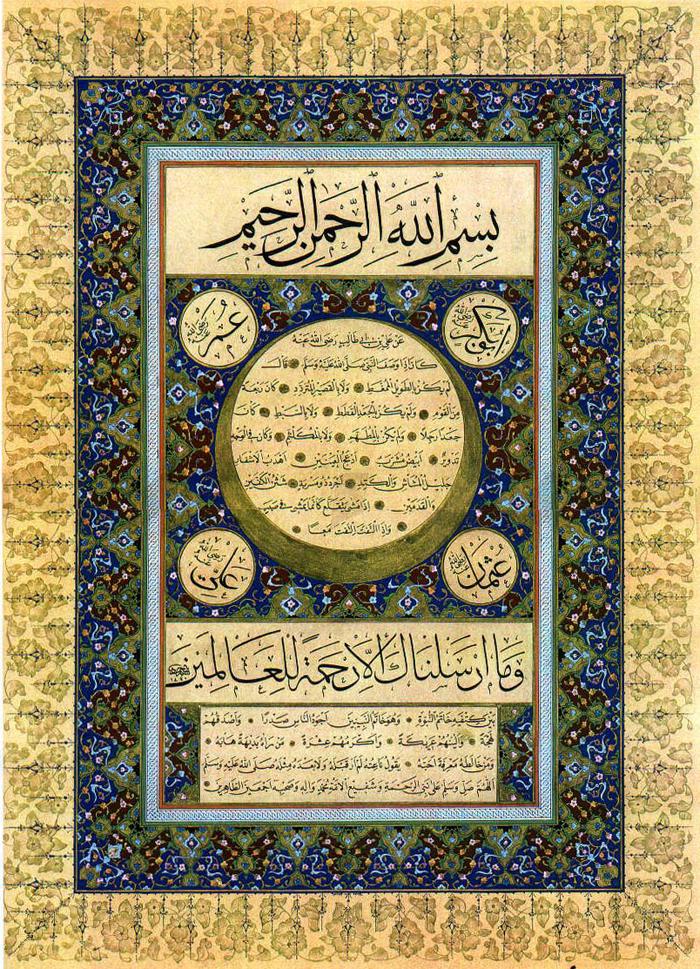 بِسْمِ اللهِ الرَّحْمنِ الرَّحِيمِ
ابوبكر رضي الله عنه
عمر رضي الله عنه
عن علي بن ابي طالب رضي الله عنه
كان اذا وصف النبي صلى الله عليه وسلم قال
لم يكن بالطويل الممغط ولا بالقصير المتردد كان ربعة
من القوم ولم يكن بالجعد القطط ولا بالسبط كان
جعدا رجلا ولم يكن بالمطهم ولا بالمكلثم وكان في الوجه
تدوير ابيض مشرب ادعج العينين اهدب الاشفار
جليل المشاش والكتد اجرد ذو مسربة شثن الكفين
والقدمين اذا مشى يتقلع كانما يمشي في صبب
واذا التفت التفت معا
عثمان رضي الله عنه
علي رضي الله عنه
وما ارسلناك الا رحمة للعالمين
بين كتفيه خاتم النبوة وهو خاتم النبيين اجود الناس صدرا واصدقهم
لهجة والينهم عريكة واكرمهم عشرة من رآه بديهة هابه
ومن خالطه معرفة احبه يقول ناعته لم ار قبله ولا بعده مثله صلى الله عليه وسلم
اللهم صل وسلم على نبي الرحمة وشفيع الامة محمد وآله وصحبه اجمعين الطاهرين